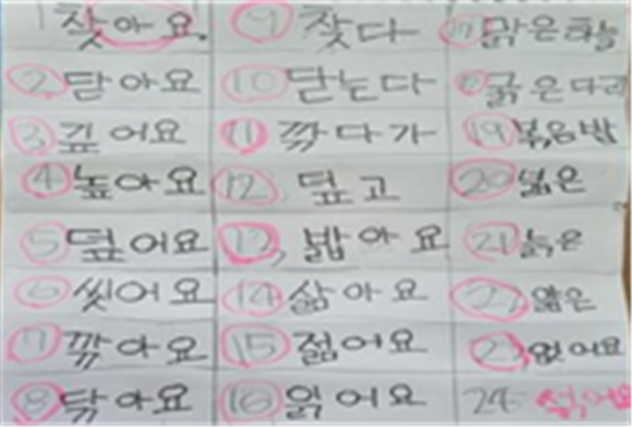 1 찾아요.
2 닫아요
3 깊어요
4 높아요
5 덮어요
6 씻어요
7 깎아요
8 닦아요
9 찾다
10 닫는다
11 깍다가
12. 덮고
13. 밟아요
14 삶아요
15 젊어요
16 읽어요
17 맑은하늘
18 굵은다리
19 볶음밥
20 넓은
21 늙은
22 얇은
23. 없어요
24 섞어요